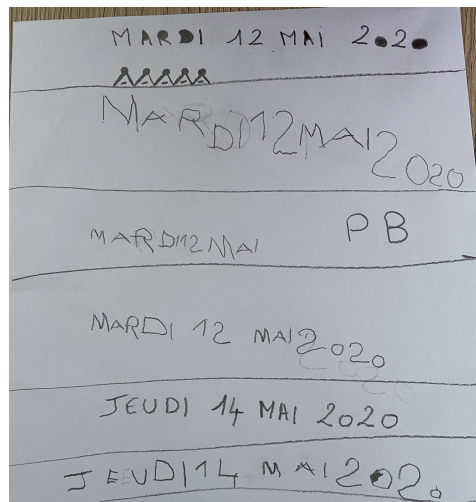 MARDI 12 MAI 2020
AAAAA
MARDI12MAI2020
MARDI12MAI
PB
MARDI 12 MAI2020
JEUDI 14 MAI 2020
JEUDI14 MAI 2020